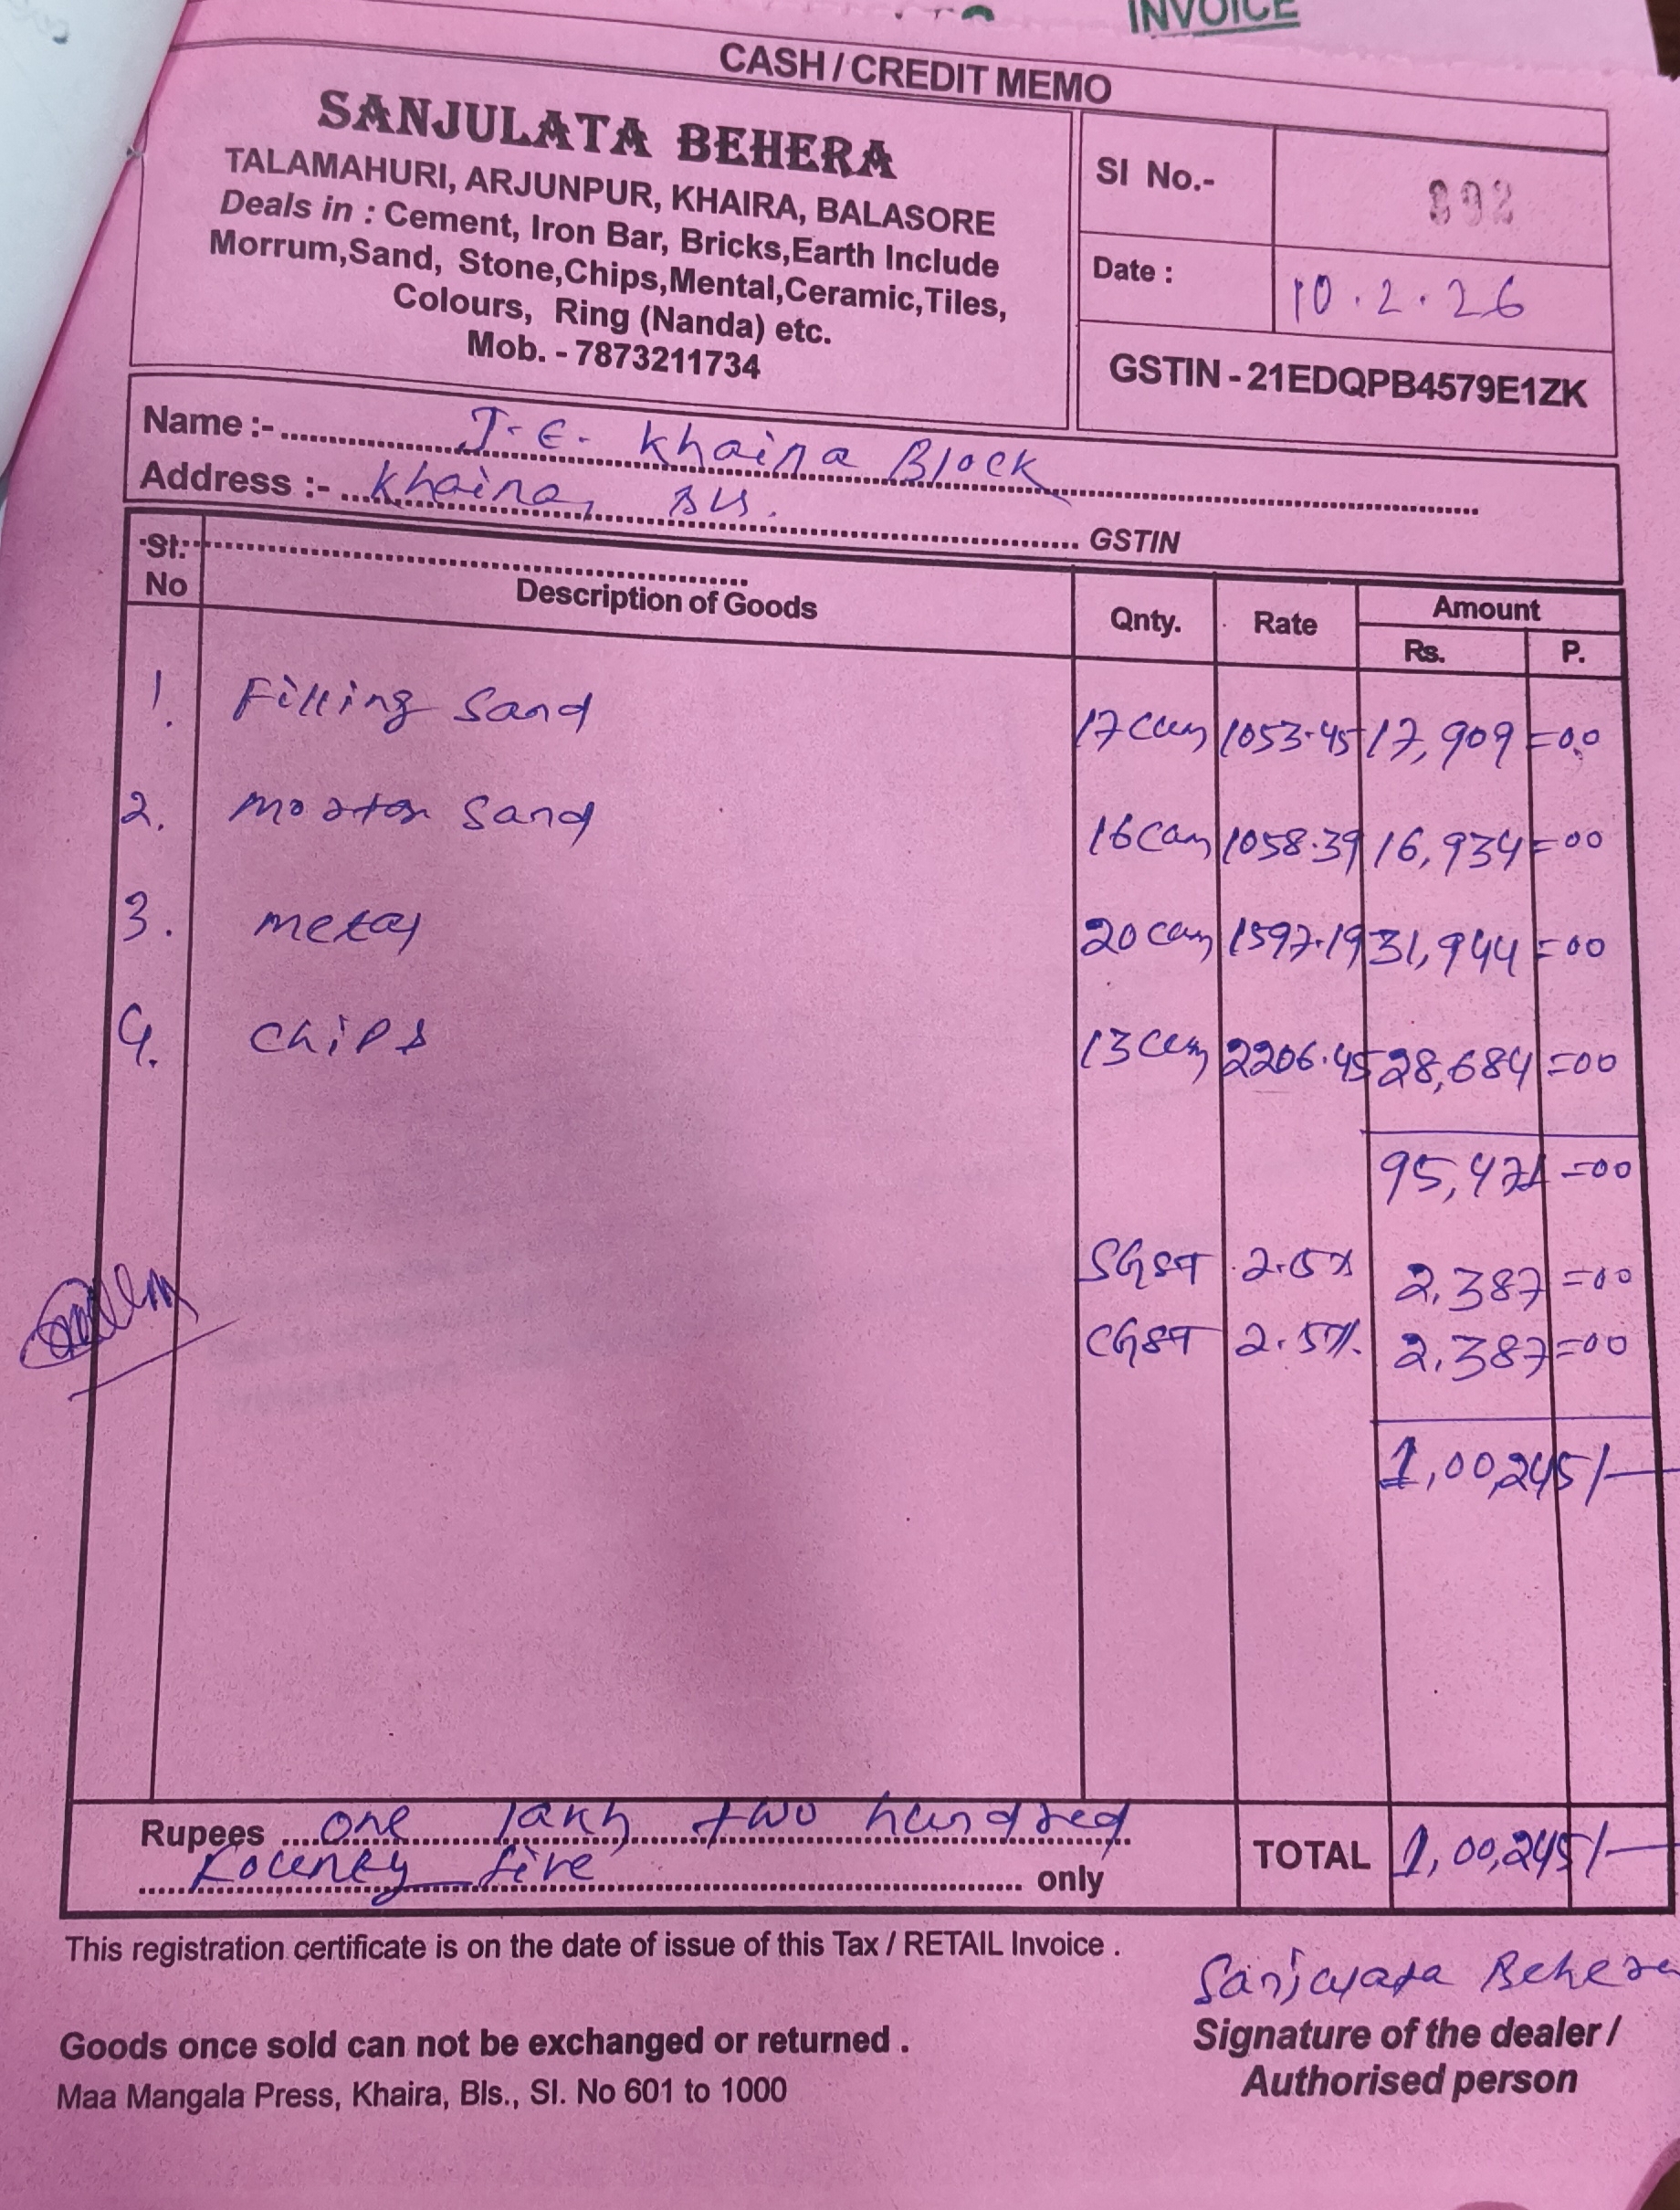 INVOICE
CASH / CREDIT MEMO
SANJULATA BEHERA
TALAMAHURI, ARJUNPUR, KHAIRA, BALASORE
Deals in : Cement, Iron Bar, Bricks,Earth Include
Morrum,Sand, Stone,Chips,Mental,Ceramic,Tiles,
Colours, Ring (Nanda) etc.
Mob. - 7873211734
Sl No.- 892
Date : 10.2.26
GSTIN - 21EDQPB4579E1ZK
Name :- J.E. Khaira Block
Address :- Khaira, Bls. GSTIN
Sl. No Description of Goods Qnty. Rate Amount Rs. P.
1. Filling Sand 17 cum 1053.45 17,909=00
2. Mortar Sand 16 cum 1058.39 16,934=00
3. Metal 20 cum 1597.19 31,944=00
4. Chips 13 cum 2206.45 28,684=00
95,471=00
SGST 2.5% 2,387=00
CGST 2.5% 2,387=00
1,00,245/-
Rupees one lakh two hundred
fourty five only
TOTAL 1,00,245/-
This registration certificate is on the date of issue of this Tax / RETAIL Invoice .
Sanjulata Behera
Signature of the dealer /
Authorised person
Goods once sold can not be exchanged or returned .
Maa Mangala Press, Khaira, Bls., Sl. No 601 to 1000